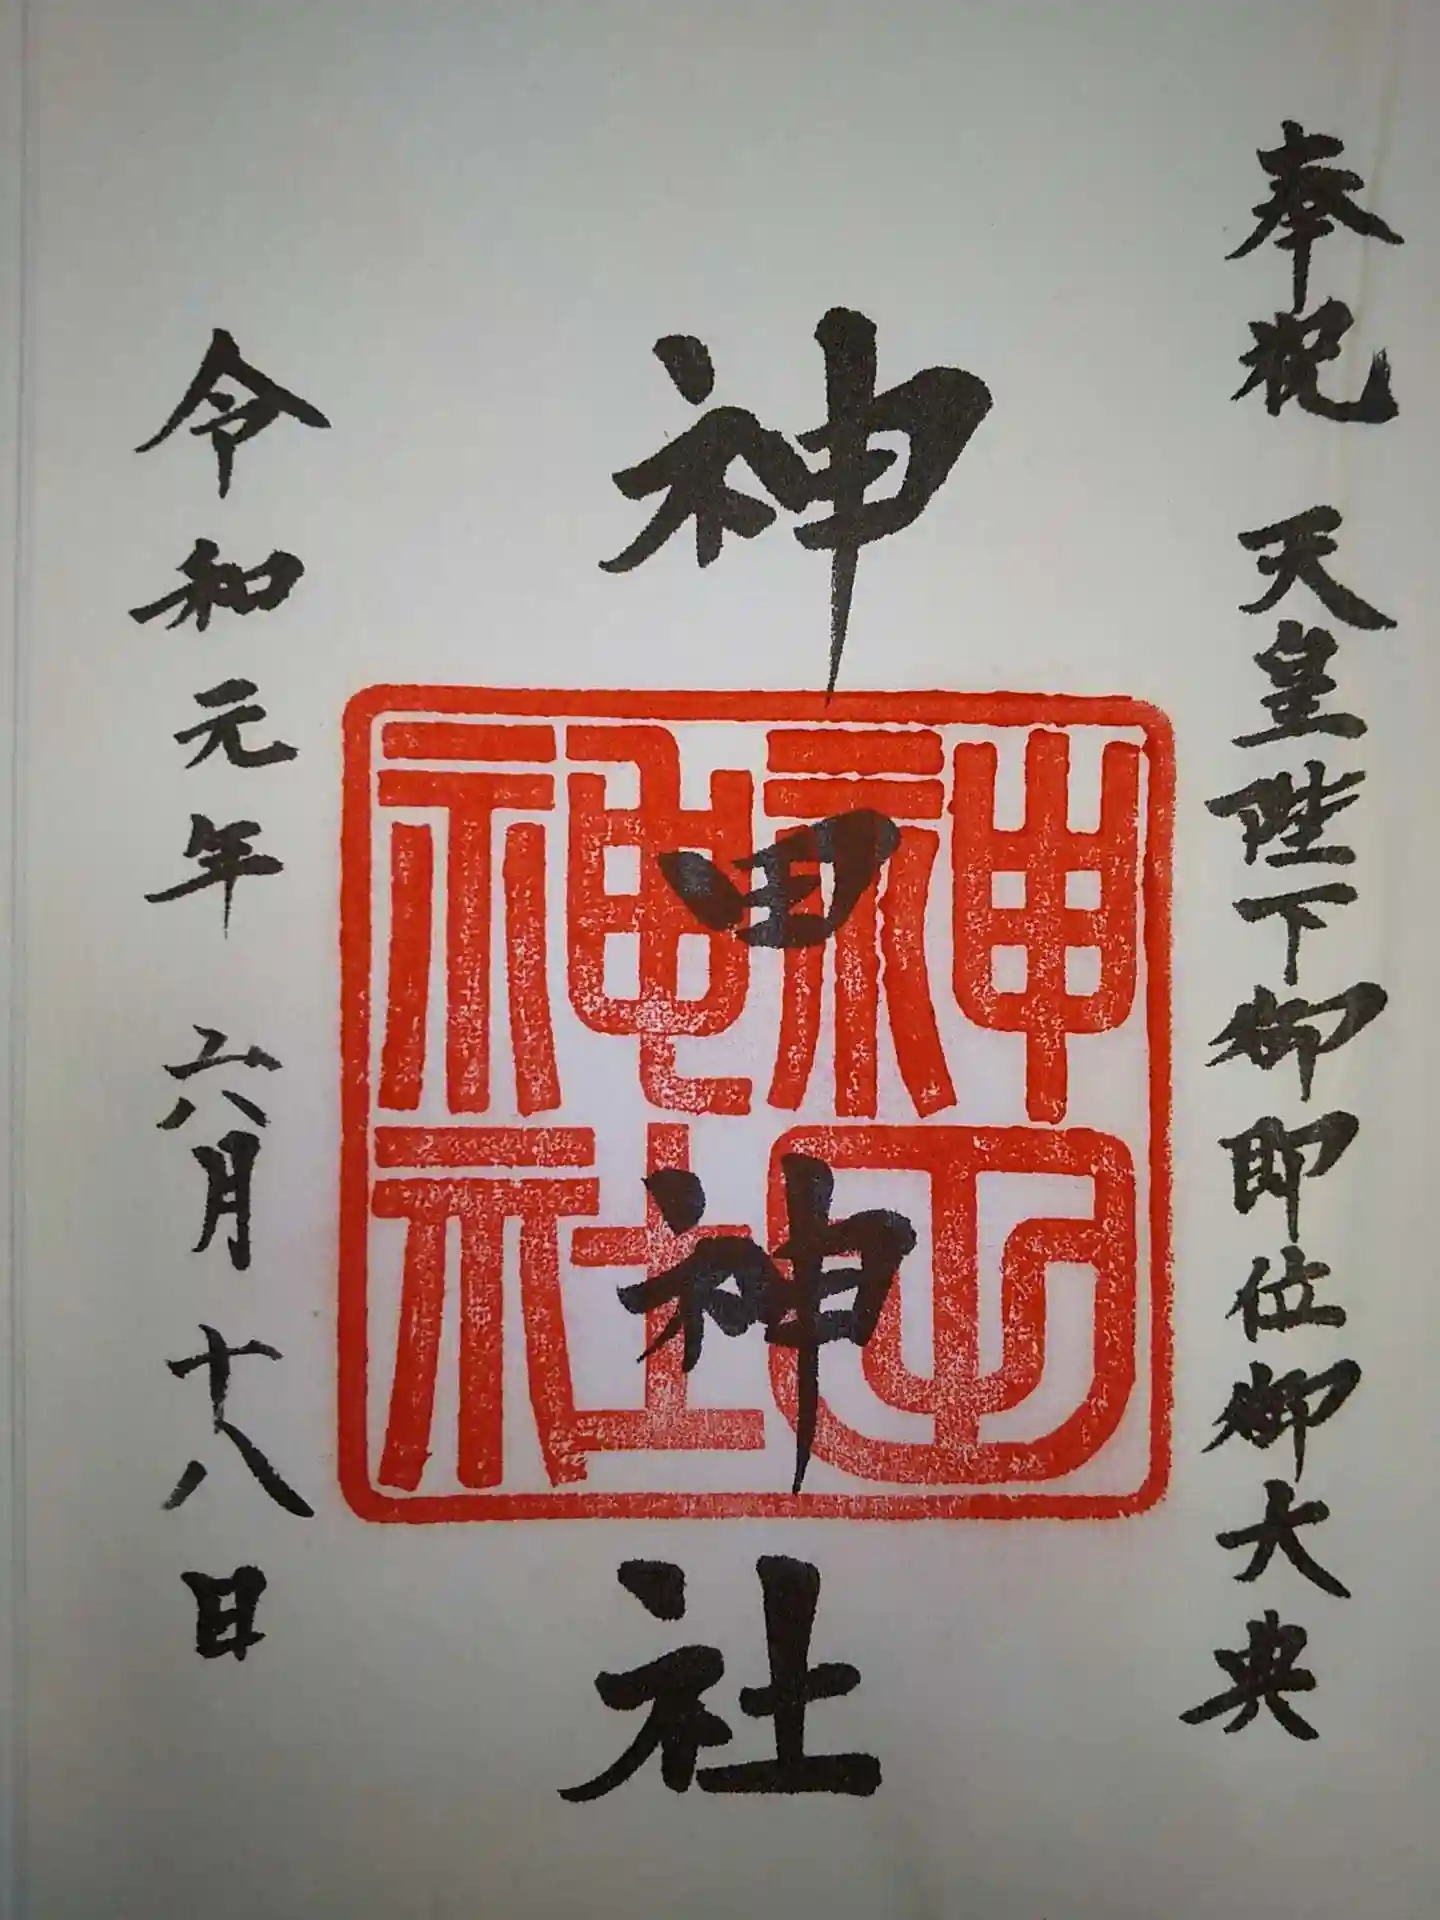 奉祝 天皇陛下御即位御大典
神田神社
神田
神社
令和元年六月十八日